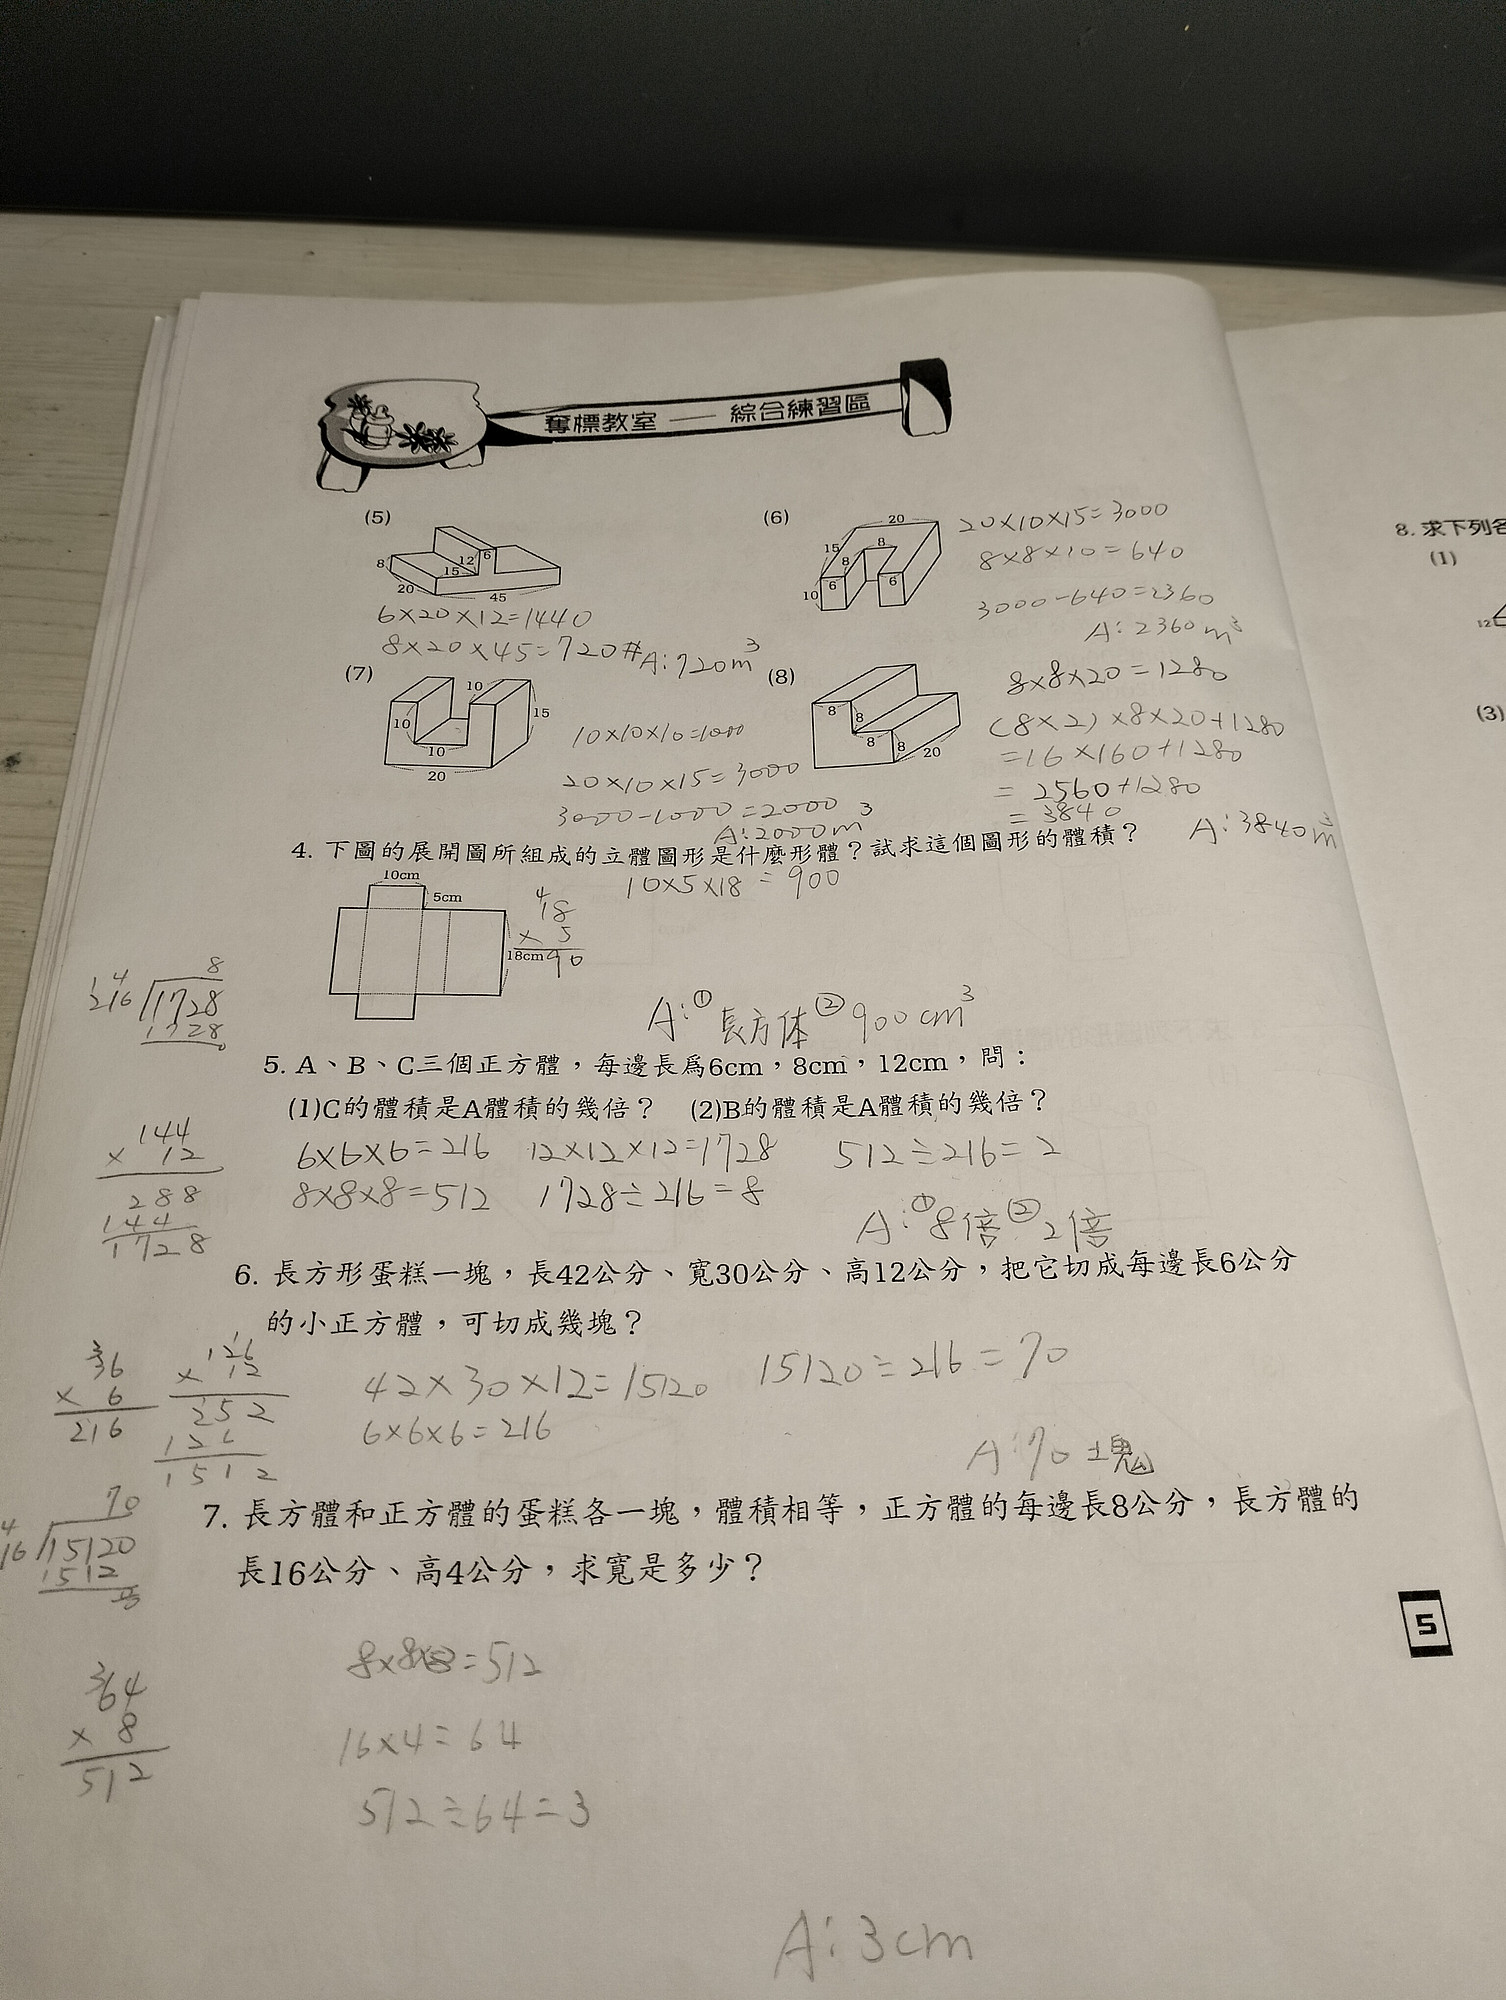 奪標教室 — 綜合練習區
(5)
8
12
6
15
20
45
6×20×12=1440
8×20×45=720# A:720m³
(6)
20
15
8
8
6
6
10
20×10×15=3000
8×8×10=640
3000-640=2360
A:2360m³
(7)
10
10
15
10
20
10×10×10=1000
20×10×15=3000
3000-1000=2000
A:2000m³
(8)
8
8
8
8
20
8×8×20=1280
(8×2)×8×20+1280
=16×160+1280
=2560+1280
=3840
A:3840m³
4. 下圖的展開圖所組成的立體圖形是什麼形體？試求這個圖形的體積？
10×5×18=900
10cm
5cm
18cm
4
18
× 5
90
A:①長方体②900cm³
8
14
216 1728
1728
0
5. A、B、C三個正方體，每邊長爲6cm，8cm，12cm，問：
(1)C的體積是A體積的幾倍？ (2)B的體積是A體積的幾倍？
6×6×6=216 12×12×12=1728 512÷216=2
8×8×8=512 1728÷216=8
A:①8倍②2倍
144
× 12
288
144
1728
6. 長方形蛋糕一塊，長42公分、寬30公分、高12公分，把它切成每邊長6公分
的小正方體，可切成幾塊？
42×30×12=15120 15120÷216=70
6×6×6=216
A:70塊
3
36
× 6
216
1
126
× 12
252
126
1512
70
4
16 15120
1512
7. 長方體和正方體的蛋糕各一塊，體積相等，正方體的每邊長8公分，長方體的
長16公分、高4公分，求寬是多少？
8×8×8=512
16×4=64
512÷64=3
3
64
× 8
512
A:3cm
5
8. 求下列各
(1)
12
(3)